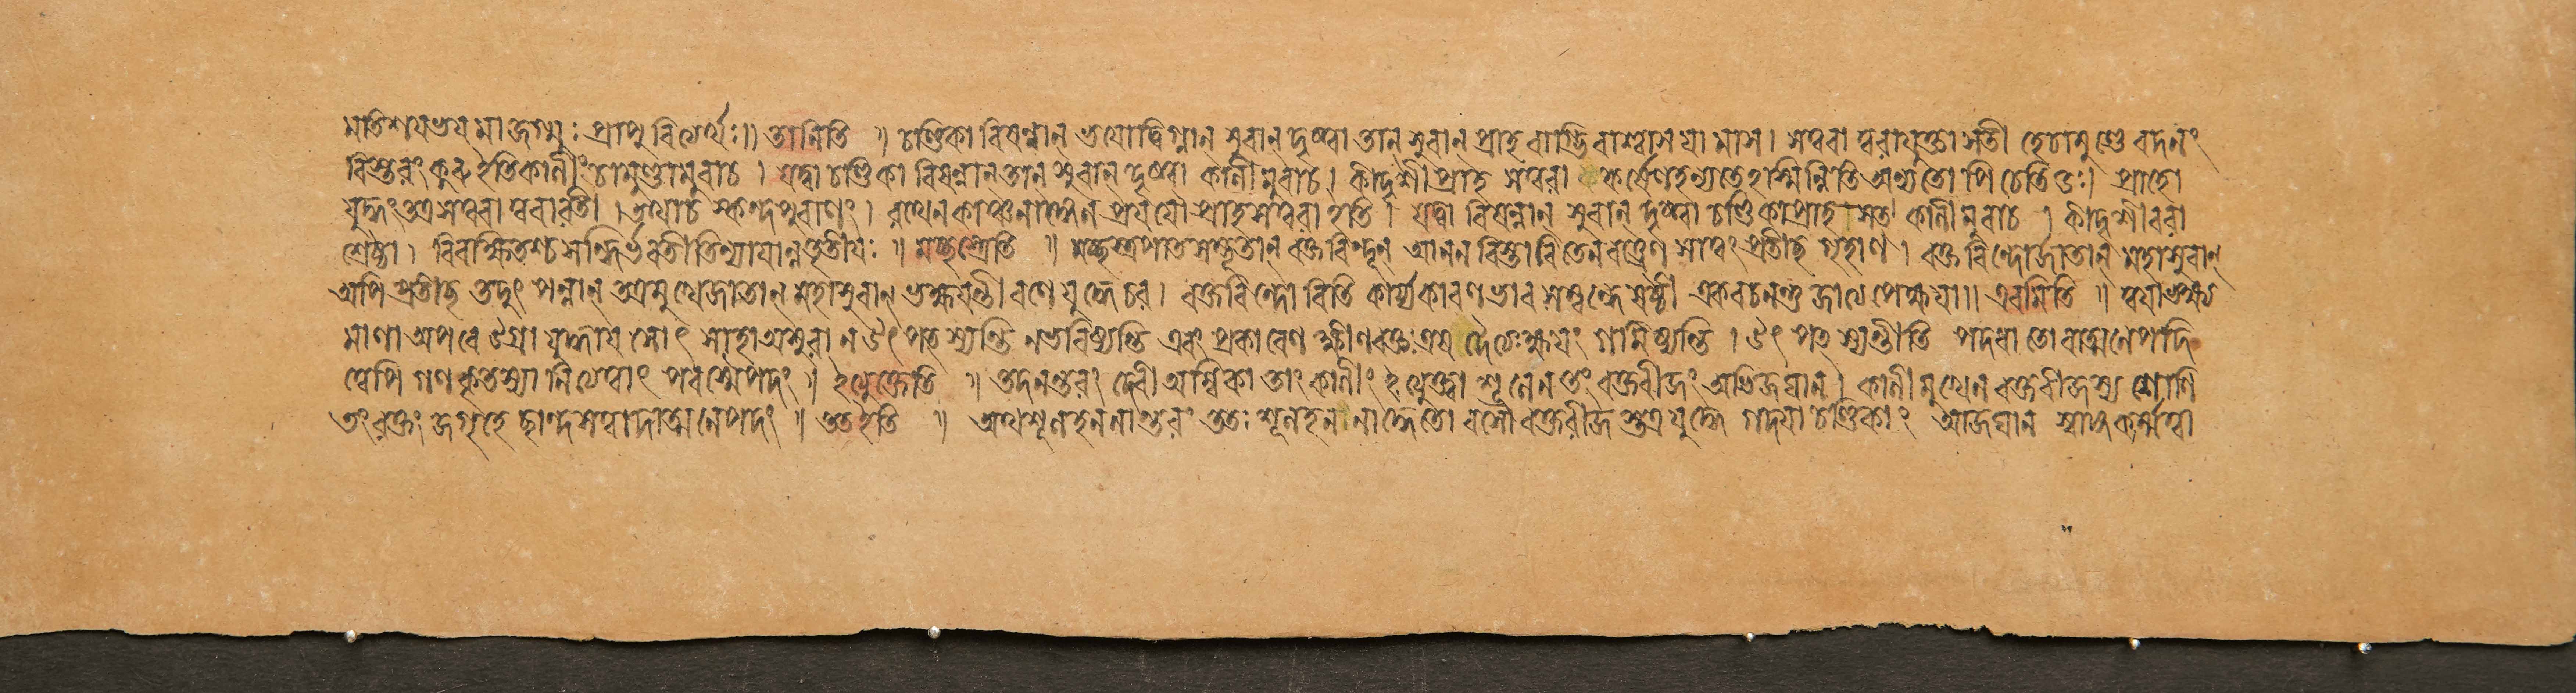 মতিশযভযমাজগ্মুঃ প্রাপুরিত্যর্থঃ॥ তানিতি ॥ চণ্ডিকা বিষন্নান্ ভযোদ্বিগ্নান্ সুরান্ দৃষ্ট্বা তান্ সুরান্ প্রাহ বাগ্ভিরাশ্বাসযামাস। সত্বরা ত্বরাযুক্তা সতী হে চামুণ্ডে বদনং
বিস্তরং কুরু ইতি কালীং চামুণ্ডামুবাচ । যদ্বা চণ্ডিকা বিষন্নান্ তান্ সুরান্ দৃষ্ট্বা কালীমুবাচ। কীদৃশী প্রাহ সত্বরা প্রাহো
যুদ্ধং তত্র সত্বরা ত্বরাবতী । তথাচ স্কন্দপুরাণং । রথেন কাঞ্চনাঙ্গেন প্রযযৌ প্রাহসত্বরা ইতি । যদ্বা বিষন্নান্ সুরান্ দৃষ্ট্বা চণ্ডিকা প্রাহ কালীমুবাচ । কীদৃশী বরা
শ্রেষ্ঠা । বিবাক্ষিতশ্চ সন্ধির্ভবতীতি ন্যাযান্ন তৃতীযঃ ॥ মচ্ছস্ত্রেতি ॥ মচ্ছস্ত্রপাতসম্ভূতান্ রক্তবিন্দূন্ আনন বিস্তারিতেন বক্ত্রেণ সাত্বং প্রতীচ্ছ গৃহাণ । রক্তবিন্দোর্জাতান্ মহাসুরান্
অপি প্রতীচ্ছ তদুৎপন্নান্ তত্রমুখে জাতান্ মহাসুরান্ ভক্ষযন্তী রণে যুদ্ধে চর । রক্তবিন্দোরিতি কার্য্যকারণভাব সম্বন্ধে ষষ্ঠী একবচনন্তু জাত্যপেক্ষযা॥ এবমিতি ॥ ত্বযা ভক্ষ্য
মাণা অপরে উগ্রা মহাঅসুরা ন উৎপৎস্যন্তি ন ভবিষ্যন্তি এবং প্রকারেণ ক্ষীণরক্তঃ এষ দৈত্যঃ ক্ষযং গমিষ্যন্তি । উৎপৎস্যন্তীতি পদধাতোরাত্মনেপদি
ত্বেপি গণকৃতস্যানিত্যত্বাৎ পরস্মৈপদং ॥ ইত্যুক্তেতি ॥ তদনন্তরং দেবী অম্বিকা তাং কালীং ইত্যুক্ত্বা শূলেন তং রক্তবীজং অভিজঘান। কালী মুখেন রক্তবীজস্য শোণি
তং রক্তং জগৃহে ছান্দসত্বাদাত্মনেপদং ॥ তত ইতি ॥ অথ শূলহননানন্তরং ততঃ শূলহননাদ্ধেতো রসৌ রক্তবীজ স্তত্র যুদ্ধে গদযা চণ্ডিকাং আজঘান